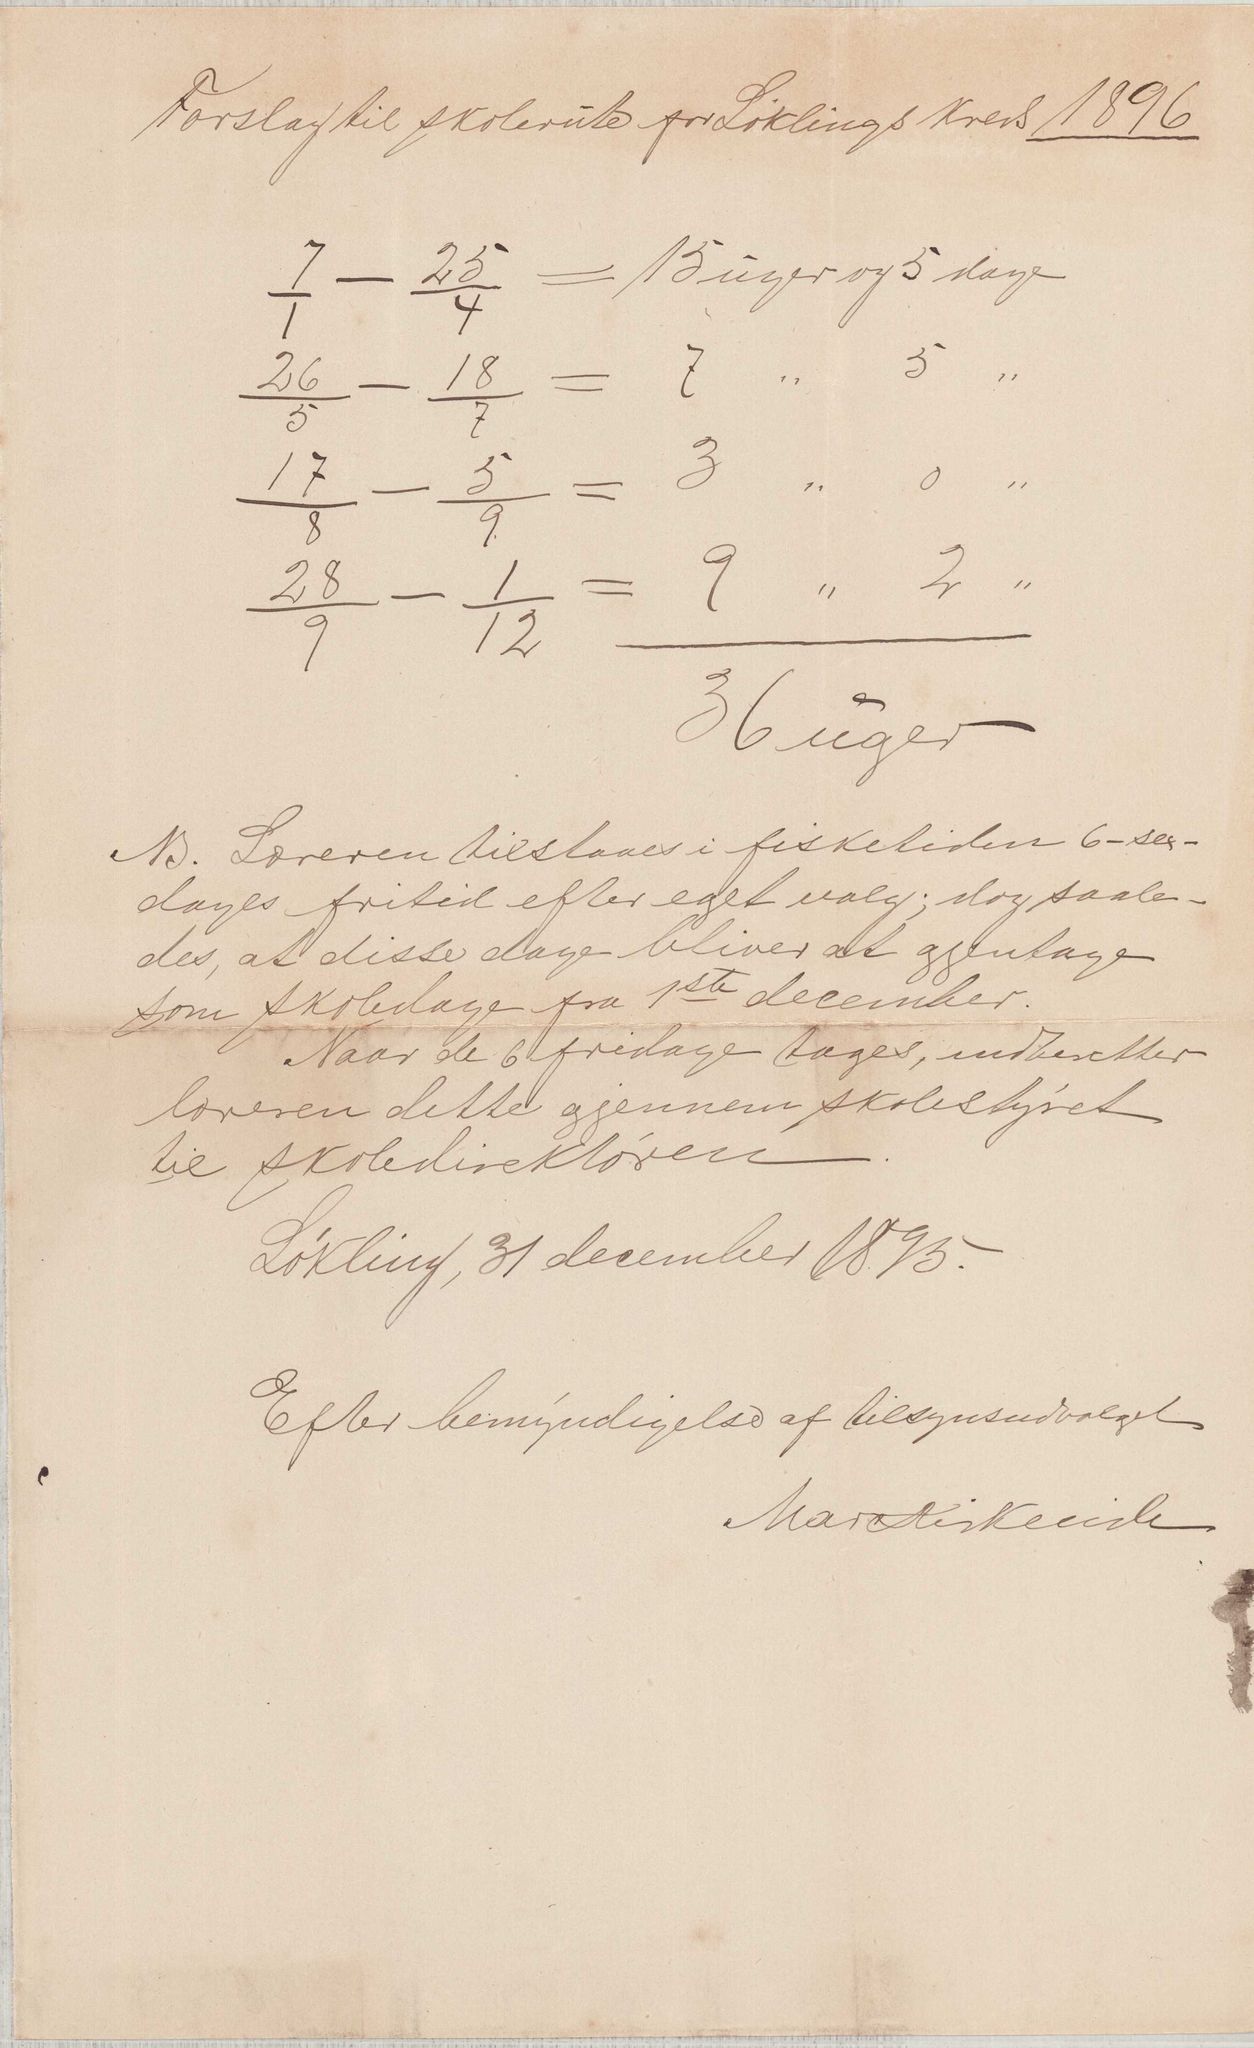 Forslag til skolerute for Løklings Kreds 1896
7/1 — 25/4 = 15 uger og 5 dage
26/5 — 18/7 = 7 " 5 "
17/8 — 5/9 = 3 " 0 "
28/9 — 1/12 = 9 " 2 "
36 uger
NB. Læreren tilstaaes i fisketiden 6-sex-
dages fritid efter eget valg; dog saale-
des, at disse dage bliver at gjentage
som skoledage fra 1ste december.
Naar de 6 fridage tages, indberetter
læreren dette gjennem skolestyret
til skoledirektøren.
Løkling, 31 december 1895.
Efter bemyndigelse af tilsynsudvalget